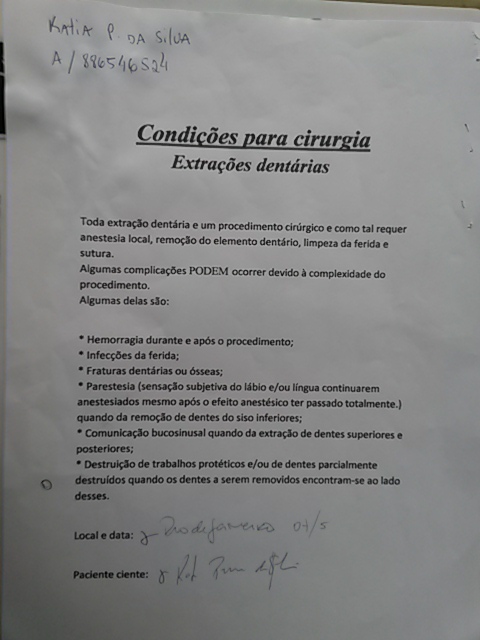 KATIA P. DA SILVA
A / 886546524
Condições para cirurgia
Extrações dentárias
Toda extração dentária e um procedimento cirúrgico e como tal requer
anestesia local, remoção do elemento dentário, limpeza da ferida e
sutura.
Algumas complicações PODEM ocorrer devido à complexidade do
procedimento.
Algumas delas são:
* Hemorragia durante e após o procedimento;
* Infecções da ferida;
* Fraturas dentárias ou ósseas;
* Parestesia (sensação subjetiva do lábio e/ou língua continuarem
anestesiados mesmo após o efeito anestésico ter passado totalmente.)
quando da remoção de dentes do siso inferiores;
* Comunicação bucosinusal quando da extração de dentes superiores e
posteriores;
* Destruição de trabalhos protéticos e/ou de dentes parcialmente
destruídos quando os dentes a serem removidos encontram-se ao lado
desses.
Local e data:
Paciente ciente: